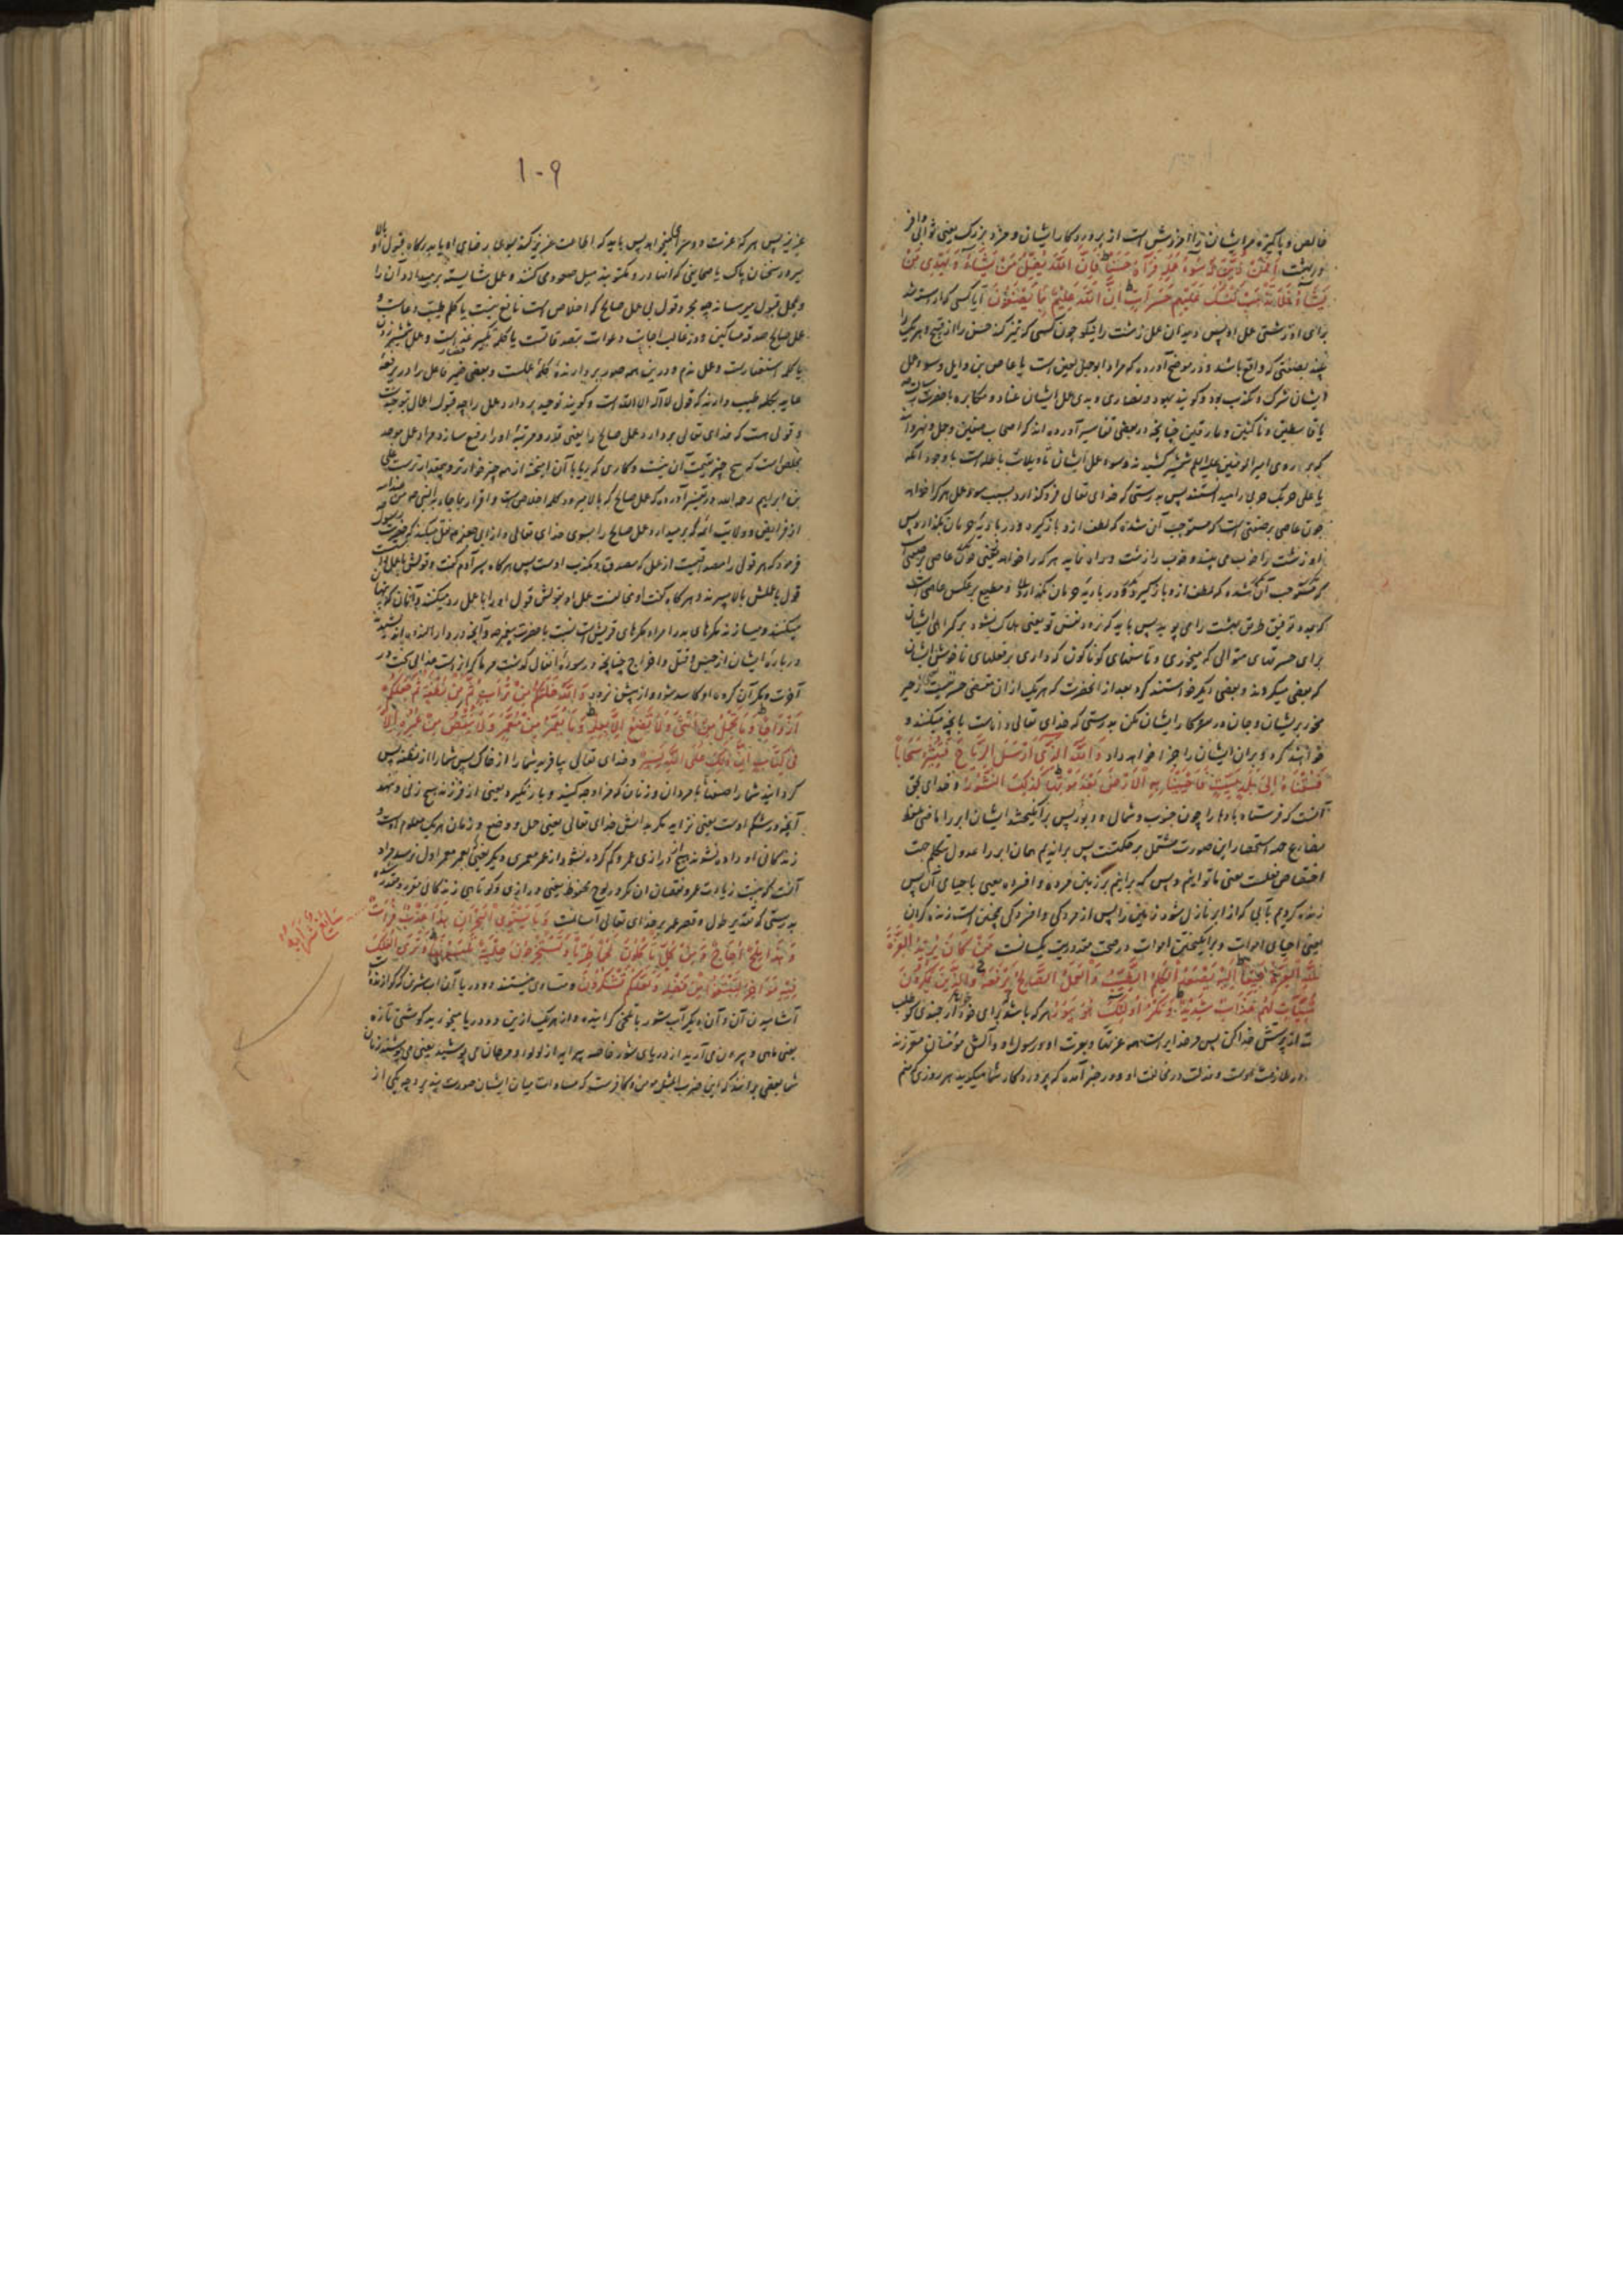 خالص و پاکیزه مر ایشان را آمرزش است از پروردگار ایشان و مزد بزرگ یعنی ثوابی وافر
در بهشت أَفَمَنْ زُيِّنَ لَهُ سُوءُ عَمَلِهِ فَرَآهُ حَسَنًا فَإِنَّ اللَّهَ يُضِلُّ مَنْ يَشَاءُ وَيَهْدِي مَنْ
يَشَاءُ فَلَا تَذْهَبْ نَفْسُكَ عَلَيْهِمْ حَسَرَاتٍ إِنَّ اللَّهَ عَلِيمٌ بِمَا يَصْنَعُونَ آیا کسی که آراسته شد
برای او زشتی عمل او پس دید آن عمل زشت را نیکو چون کسی که تمیز کند حسن را از قبیح و هر یک را
بصفتی که واقع باشد و در موضح آورده که مراد ابوجهل لعین است یا عاص بن وایل و سوء عمل
ایشان شرک و تکذیب بود و گویند یهود و نصاری و بدی عمل ایشان عناد و مکابره با حضرت رسالت
یا قاسطین و ناکثین و مارقین چنانچه در بعضی تفاسیر آورده اند که اصحاب صفین و جمل و نهروان
که بر روی امیرالمومنین علیه السلام شمشیر کشیدند و سوء عمل ایشان تاویلات باطله است با وجود آنکه
یا علی حربک حربی را میدانستند پس بدرستی که خدای تعالی فرو گذارد بسبب سوء عمل هر که را خواهد
چون عاصی بر صفتی است که مستوجب آن شده که لطف ازو باز گیرد و در بادیهٔ حرمان بگذارد پس
او زشت را خوب می بیند و خوب را زشت و راه نماید هر که را خواهد یعنی چون عاصی بر صفتی است
که مستوجب آن شده که لطف ازو باز گیرد و در بادیهٔ حرمان بگذارد و مطیع بر عکس عاصی است
که بمدد توفیق طریق بهشت را می پوید پس باید که نرود نفس تو یعنی هلاک نشود بر گمراهی ایشان
برای حسرتهای متوالی که میخوری و تاسفهای گوناگون که داری بر فعلهای ناخوش ایشان
که بعضی میکردند و بعضی دیگر خواستند کرد بعد از آنحضرت که هر یک از آن مقتضی حسرتیست
مخور بر ایشان و جان در سر کار ایشان مکن بدرستی که خدای تعالی داناست بآنچه میکنند و
خواهند کرد و بران ایشان را جزا خواهد داد وَاللَّهُ الَّذِي أَرْسَلَ الرِّيَاحَ فَتُثِيرُ سَحَابًا
فَسُقْنَاهُ إِلَى بَلَدٍ مَيِّتٍ فَأَحْيَيْنَا بِهِ الْأَرْضَ بَعْدَ مَوْتِهَا كَذَلِكَ النُّشُورُ و خدای بحق
آنست که فرستاد بادها را چون جنوب و شمال و دبور پس برانگیختند ایشان ابر را ماضی بلفظ
مضارع جهة استحضار این صورت مشتمل بر حکمتست پس براندیم همان ابر را عدول بتکلم جهت
اختصاص فعلست یعنی ما توانیم و بس که برانیم بر زمین مرده و افسرده یعنی باحیای آن پس
زنده کردیم بآبی که از ابر نازل شود زمین را پس از مردگی و افسردگی همچنین است زنده کردن
یعنی احیای اموات و برانگیختن اموات در صحت مقدوریت یکسانست مَنْ كَانَ يُرِيدُ الْعِزَّةَ
فَلِلَّهِ الْعِزَّةُ جَمِيعًا إِلَيْهِ يَصْعَدُ الْكَلِمُ الطَّيِّبُ وَالْعَمَلُ الصَّالِحُ يَرْفَعُهُ وَالَّذِينَ يَمْكُرُونَ
السَّيِّئَاتِ لَهُمْ عَذَابٌ شَدِيدٌ وَمَكْرُ أُولَئِكَ هُوَ يَبُورُ هر که باشد برای خود ارجمندی گو طلب
از پرستش خدا کن پس مر خدایراست همه عزتها و بعزت او و رسول او و آلش مؤمنان معززند
در ملازمت اوست و مذلت در مخالفت او و در خبر آمده که پروردگار شما میگوید هر روزی که منم
۱۰۹
عزیز پس هر که عزت دو سرای میخواهد پس باید که اطاعت عزیز کند بسوی رضای او یا بدرگاه قبول او بالا
میرود سخنان پاک یا صحایفی که آنها در و مکتوبند میل صعود می کنند و عمل شایسته برمیدارد آن را
و بمحل قبول میرساند چه مجرد قول بی عمل صالح که اخلاص است نافع نیست یا کلم طیب دعاست و
عمل صالح صدقه مساکین و در غالب اجابت دعوات بتصدقاتست یا کلمه تکبیر غزاست و عمل شمشیر زدن
یا کلمه استغفارست و عمل ندم و درین همه صور بردارنده کلمهٔ عملست و بعضی ضمیر فاعل را در یرفعه
عاید بکلمه طیب دارند که قول لا اله الا الله است و گویند توحید بردارد عمل را چه قبول اعمال بتوحیدست
و قولی هست که خدای تعالی بردارد عمل صالح را یعنی قدر و مرتبه او را رفیع سازد و مراد عمل موحد
مخلص است که هیچ چیز بقیمت آن نیست و کاری که بریا بآن آمیخته از همه چیز خوارتر و بیمقدارتر است علی
بن ابراهیم رحمه الله در تفسیر آورده که عمل صالح که بالا میرود کلمه اخلاص است و اقرار بما جاء به النبی من عند الله
از فرایض و ولایت ائمه که برمیدارد عمل صالح را بسوی خدای تعالی و از ابی جعفر ع نقل میکنند که حضرت رسول ص
فرمود که هر قولی را مصداقیست از عمل که مصدق و مکذب اوست پس هرگاه پسر آدم گفت و قولش با عمل
قول با عملش بالا میبرند و هرگاه گفت او مخالفت عمل او بود قول او را با عمل رد میکنند و آنان که
میکنند و میسازند مکرهای بد را مراد مکرهای قریش است نسبت با حضرت پیغمبر ص و آنچه در دار الندوه اندیشیدند
در بارهٔ ایشان از حبس و قتل و اخراج چنانچه در سورهٔ انفال گذشت مر ماکرانراست عذابی سخت در
آخرت و مکر آن گروه او کاسد شود و از پیش نرود وَاللَّهُ خَلَقَكُمْ مِنْ تُرَابٍ ثُمَّ مِنْ نُطْفَةٍ ثُمَّ جَعَلَكُمْ
أَزْوَاجًا وَمَا تَحْمِلُ مِنْ أُنْثَى وَلَا تَضَعُ إِلَّا بِعِلْمِهِ وَمَا يُعَمَّرُ مِنْ مُعَمَّرٍ وَلَا يُنْقَصُ مِنْ عُمُرِهِ إِلَّا
فِي كِتَابٍ إِنَّ ذَلِكَ عَلَى اللَّهِ يَسِيرٌ و خدای تعالی بیافرید شما را از خاک پس شما را از نطفه پس
گردانید شما را صنفها با مردان و زنان که مزاوجه کنید و بار نگیرد یعنی از فرزند هیچ زنی و ننهد
آنچه در شکم اوست یعنی نزاید مگر بدانش خدای تعالی یعنی حمل و وضع و زمان هر یک معلوم اوست و
زندگانی او داده نشود هیچ دراز عمر و کم کرده نشود از عمر معمری دیگر یعنی بعمر معمر اول نرسد مراد
آنست که نیست زیادت عمر و نقصان آن مگر در لوح محفوظ یعنی درازی و کوتاهی زندگانی مقرر و مقدر شده
بدرستی که تقدیر طول و قصر عمر بر خدای تعالی آسانست وَمَا يَسْتَوِي الْبَحْرَانِ هَذَا عَذْبٌ فُرَاتٌ
سَائِغٌ شَرَابُهُ
وَهَذَا مِلْحٌ أُجَاجٌ وَمِنْ كُلٍّ تَأْكُلُونَ لَحْمًا طَرِيًّا وَتَسْتَخْرِجُونَ حِلْيَةً تَلْبَسُونَهَا وَتَرَى الْفُلْكَ
فِيهِ مَوَاخِرَ لِتَبْتَغُوا مِنْ فَضْلِهِ وَلَعَلَّكُمْ تَشْكُرُونَ و مساوی نیستند دو دریا آن آب شیرین که گوارنده است
آشامیدن آن و آن دیگر آب شور بتلخی گراینده و از هر یک ازین دو دریا میخورید گوشتی تازه
یعنی ماهی و بیرون می آرید از دریای شور خاصه پیرایه از لولو و مرجان می پوشید یعنی می پوشند زنان
شما بعضی برآنند که این ضرب المثل مومن و کافرست که مساوات میان ایشان صورت نبندد چه یکی از